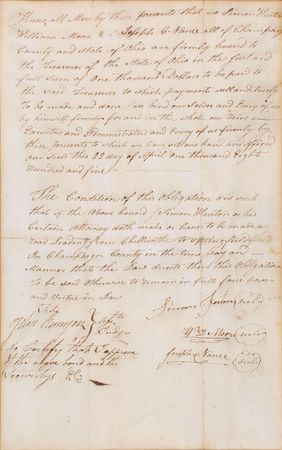 Know all Men by these presents that we Simon Kenton
William Moore & Joseph C. Vance all of Champaign
County and State of Ohio are firmly bound to
the Treasurer of the State of Ohio in the just and
full Sum of One thousand Dollars to be paid to
the said Treasurer to which payment will and truly
to be made and done we bind our Selves and Every of us
by himself firmly for and in the whole our Heirs
Executors and Administrators and Every of us firmly by
these presents to which we have
our Seals this 22 day of April One thousand Eight
Hundred and five
The Condition of this Obligation is such
that if the above bound Simon Kenton or his
Certain Attorney doth make or Cause to be made a
road Leading from Chillicothe to Springfield
In Champaign County in the time way and
Manner that the Law directs then this Obligation
To be Void otherwise to remain in full force power
and Virtue in Law
Test
Judge
Simon Kenton Seal
Wm Moore Seal
Joseph Vance Seal
I do Certify that I approve
of the above bond and the
Security